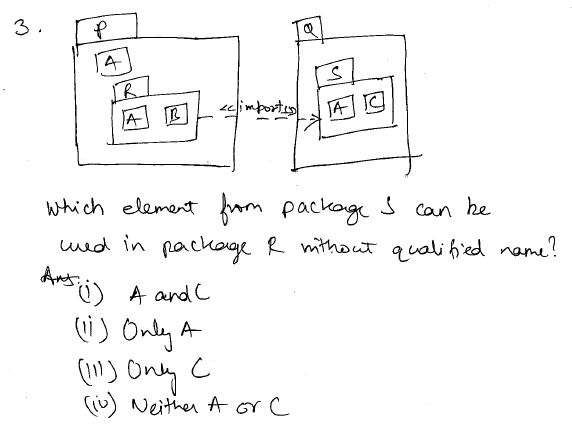 3.
P
Q
A
S
R
A
B
<<imports>>
A
C
Which element from package S can be
used in package R without qualified name?
Ans:
(i) A and C
(ii) Only A
(iii) Only C
(iv) Neither A or C